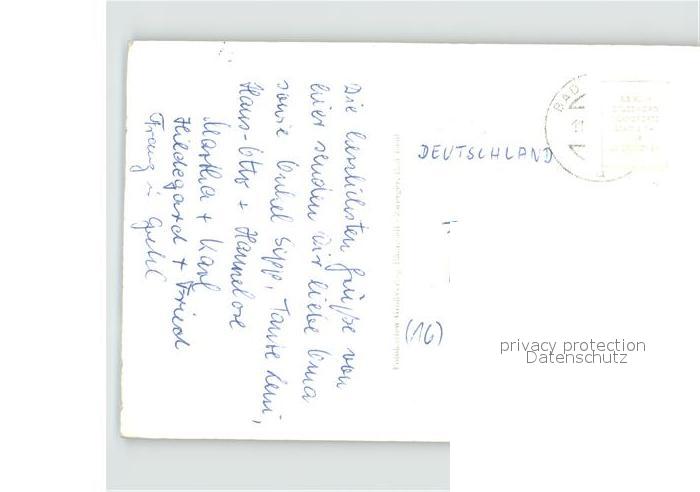 Die herzlichsten Grüße von
hier senden Dir liebe Oma
sowie Onkel Sepp, Tante Leni,
Hans-Otto + Hannelore
Martha + Karl
Hildegard + Fried
Franz
DEUTSCHLAND
BAD
(16)
privacy protection
Datenschutz